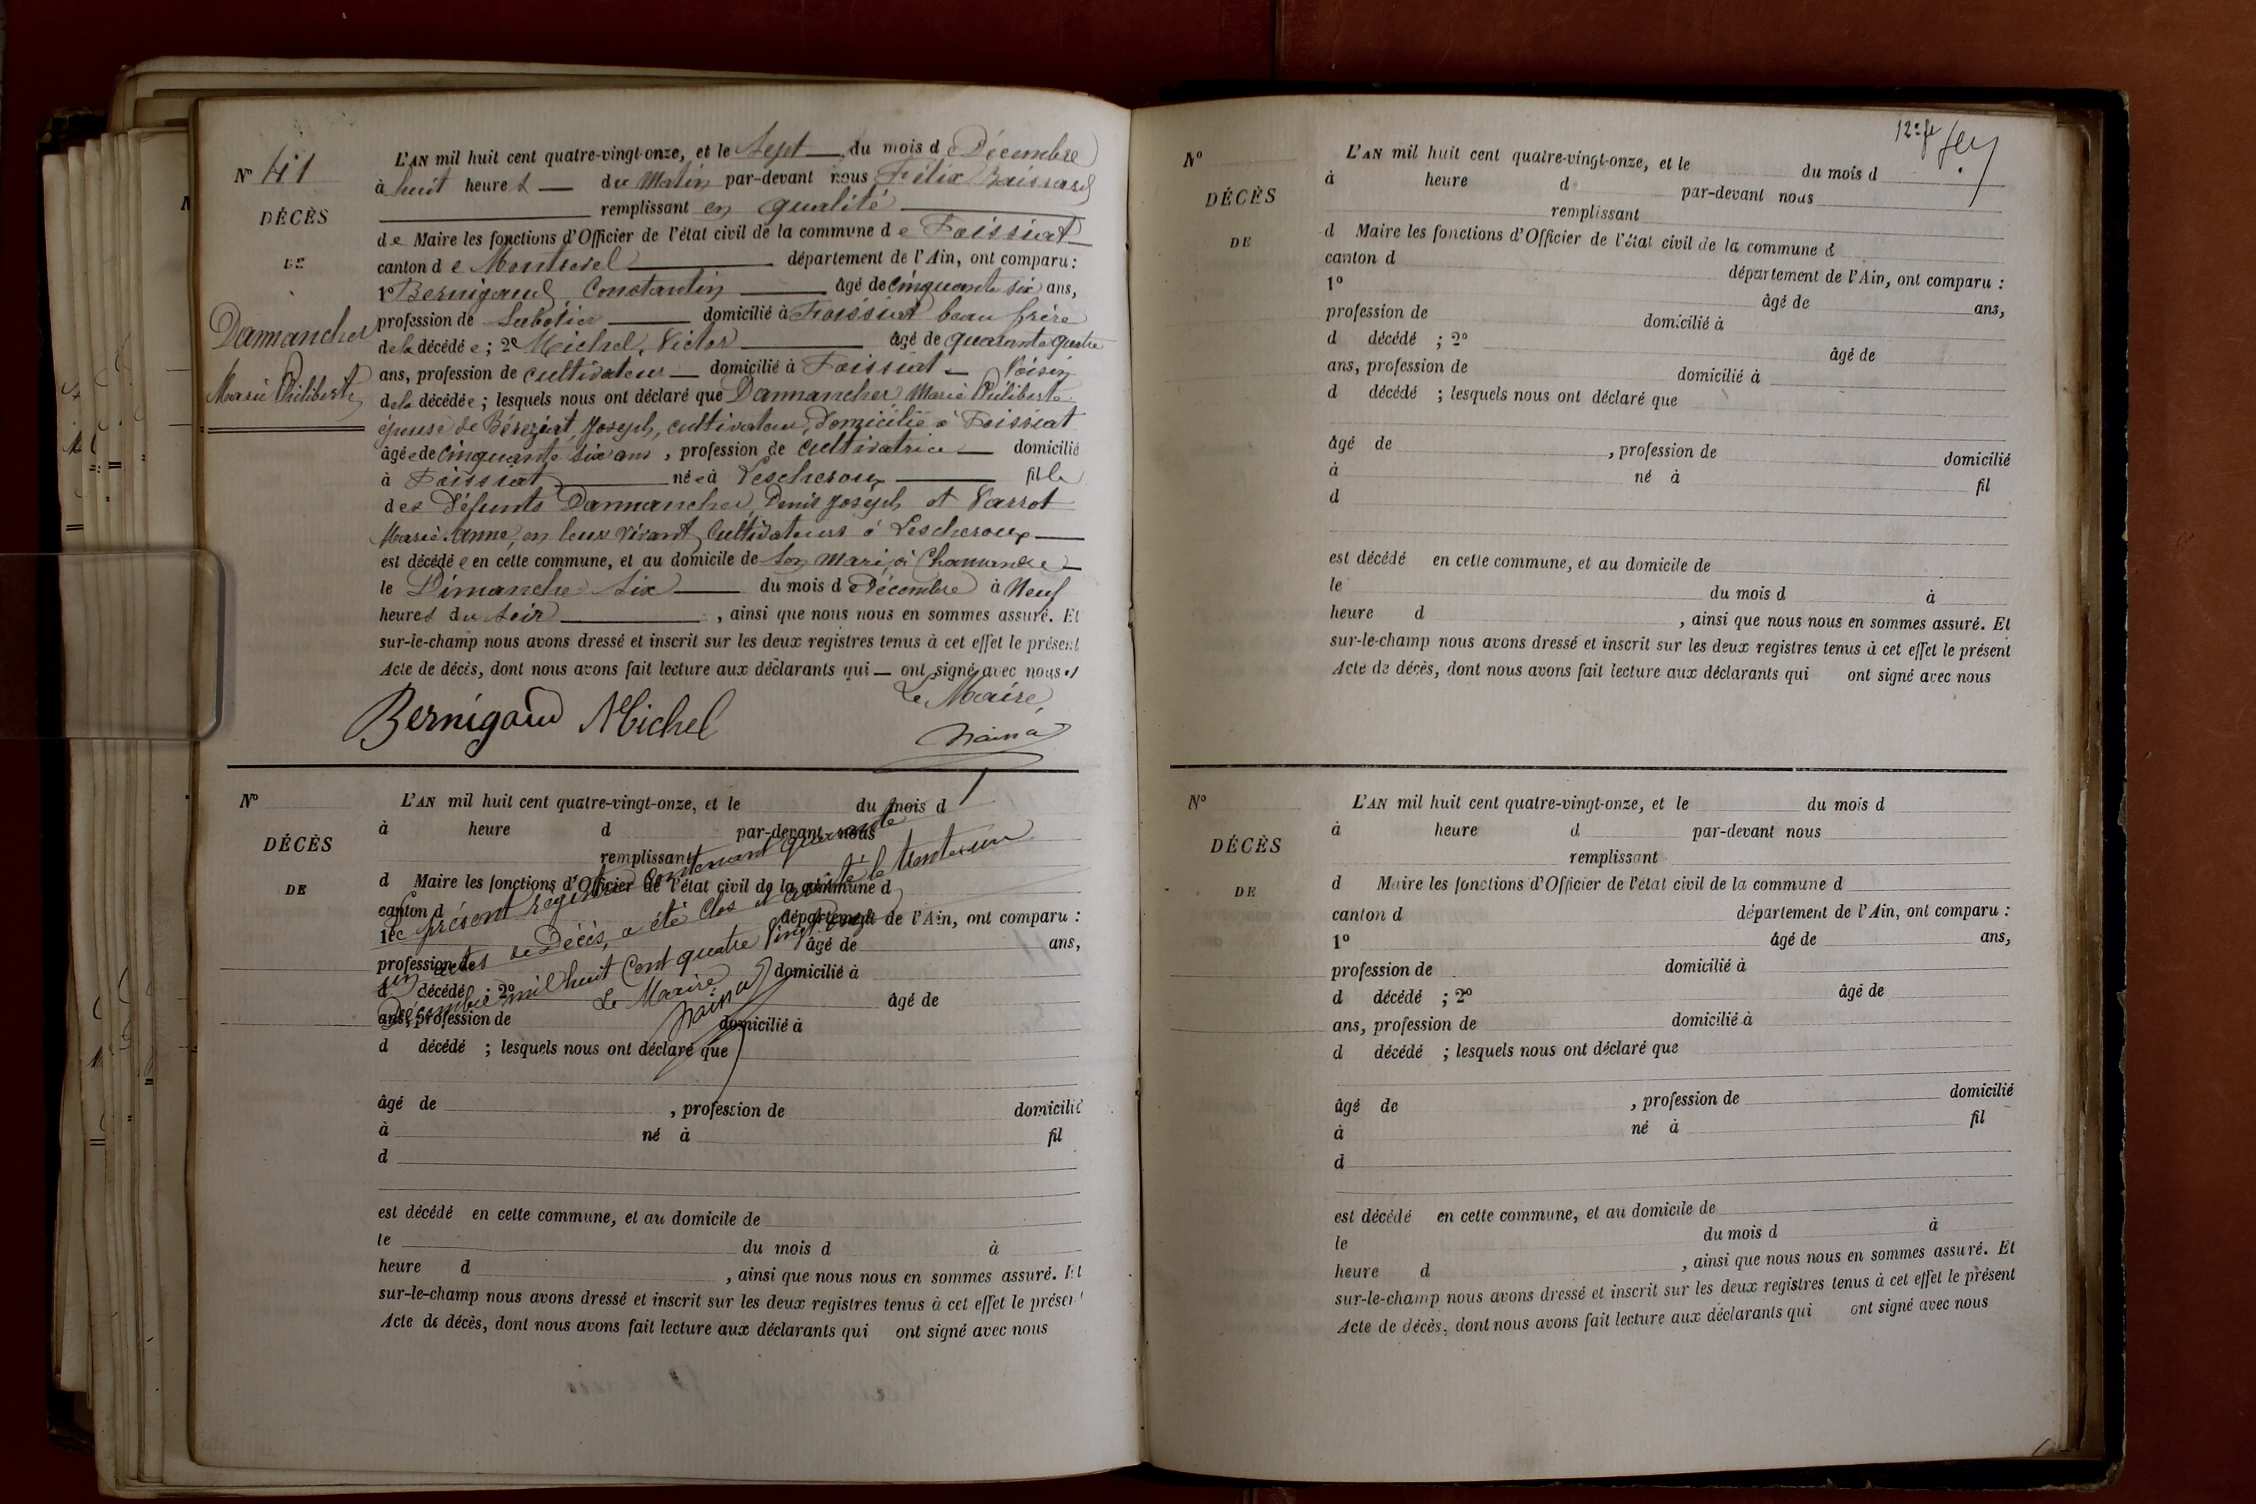 N° 41
DÉCÈS
DE
Dannancher
Marie Philiberte
L'AN mil huit cent quatre-vingt-onze, et le Sept du mois de Décembre
à huit heures du Matin par-devant nous Félix
remplissant en qualité
de Maire les fonctions d'Officier de l'état civil de la commune de Foissiat
canton de Montrevel département de l'Ain, ont comparu :
1° Bernigaud Constantin âgé de cinquante six ans,
profession de Sabotier domicilié à Foissiat beau frère
de la décédée ; 2° Michel, Victor âgé de quarante quatre
ans, profession de cultivateur domicilié à Foissiat Voisin
de la décédée ; lesquels nous ont déclaré que Dannancher Marie Philiberte
épouse de Bérezéat Joseph, cultivateur, domicilié à Foissiat
âgée de cinquante six ans, profession de cultivatrice domicilié
à Foissiat née à Lescheroux fille
des défunts Dannancher, Denis Joseph et Varrot
Marie Anne, en leur vivant Cultivateurs à Lescheroux
est décédée en cette commune, et au domicile de son mari, à Chamandre
le Dimanche Six du mois de Décembre à Neuf
heures du soir, ainsi que nous nous en sommes assuré. Et
sur-le-champ nous avons dressé et inscrit sur les deux registres tenus à cet effet le présent
Acte de décès, dont nous avons fait lecture aux déclarants qui ont signé avec nous
Le Maire,
Bernigaud Michel
N°
DÉCÈS
DE
L'AN mil huit cent quatre-vingt-onze, et le du mois d
à heure d par-devant nous
remplissant
d Maire les fonctions d'Officier de l'état civil de la commune d
canton d département de l'Ain, ont comparu :
1° âgé de ans,
profession de domicilié à
d décédé ; 2° âgé de
ans, profession de domicilié à
d décédé ; lesquels nous ont déclaré que
âgé de , profession de domicilié
à né à fil
d
est décédé en cette commune, et au domicile de
le du mois d à
heure d , ainsi que nous nous en sommes assuré. Et
sur-le-champ nous avons dressé et inscrit sur les deux registres tenus à cet effet le présent
Acte de décès, dont nous avons fait lecture aux déclarants qui ont signé avec nous
Le présent registre contenant quarante
un actes de Décès, a été clos et arrêté le trente-un
Décembre mil huit cent quatre vingt onze
Le Maire
N°
DÉCÈS
DE
L'AN mil huit cent quatre-vingt-onze, et le du mois d
à heure d par-devant nous
remplissant
d Maire les fonctions d'Officier de l'état civil de la commune d
canton d département de l'Ain, ont comparu :
1° âgé de ans,
profession de domicilié à
d décédé ; 2° âgé de
ans, profession de domicilié à
d décédé ; lesquels nous ont déclaré que
âgé de , profession de domicilié
à né à fil
d
est décédé en cette commune, et au domicile de
le du mois d à
heure d , ainsi que nous nous en sommes assuré. Et
sur-le-champ nous avons dressé et inscrit sur les deux registres tenus à cet effet le présent
Acte de décès, dont nous avons fait lecture aux déclarants qui ont signé avec nous
N°
DÉCÈS
DE
L'AN mil huit cent quatre-vingt-onze, et le du mois d
à heure d par-devant nous
remplissant
d Maire les fonctions d'Officier de l'état civil de la commune d
canton d département de l'Ain, ont comparu :
1° âgé de ans,
profession de domicilié à
d décédé ; 2° âgé de
ans, profession de domicilié à
d décédé ; lesquels nous ont déclaré que
âgé de , profession de domicilié
à né à fil
d
est décédé en cette commune, et au domicile de
le du mois d à
heure d , ainsi que nous nous en sommes assuré. Et
sur-le-champ nous avons dressé et inscrit sur les deux registres tenus à cet effet le présent
Acte de décès, dont nous avons fait lecture aux déclarants qui ont signé avec nous